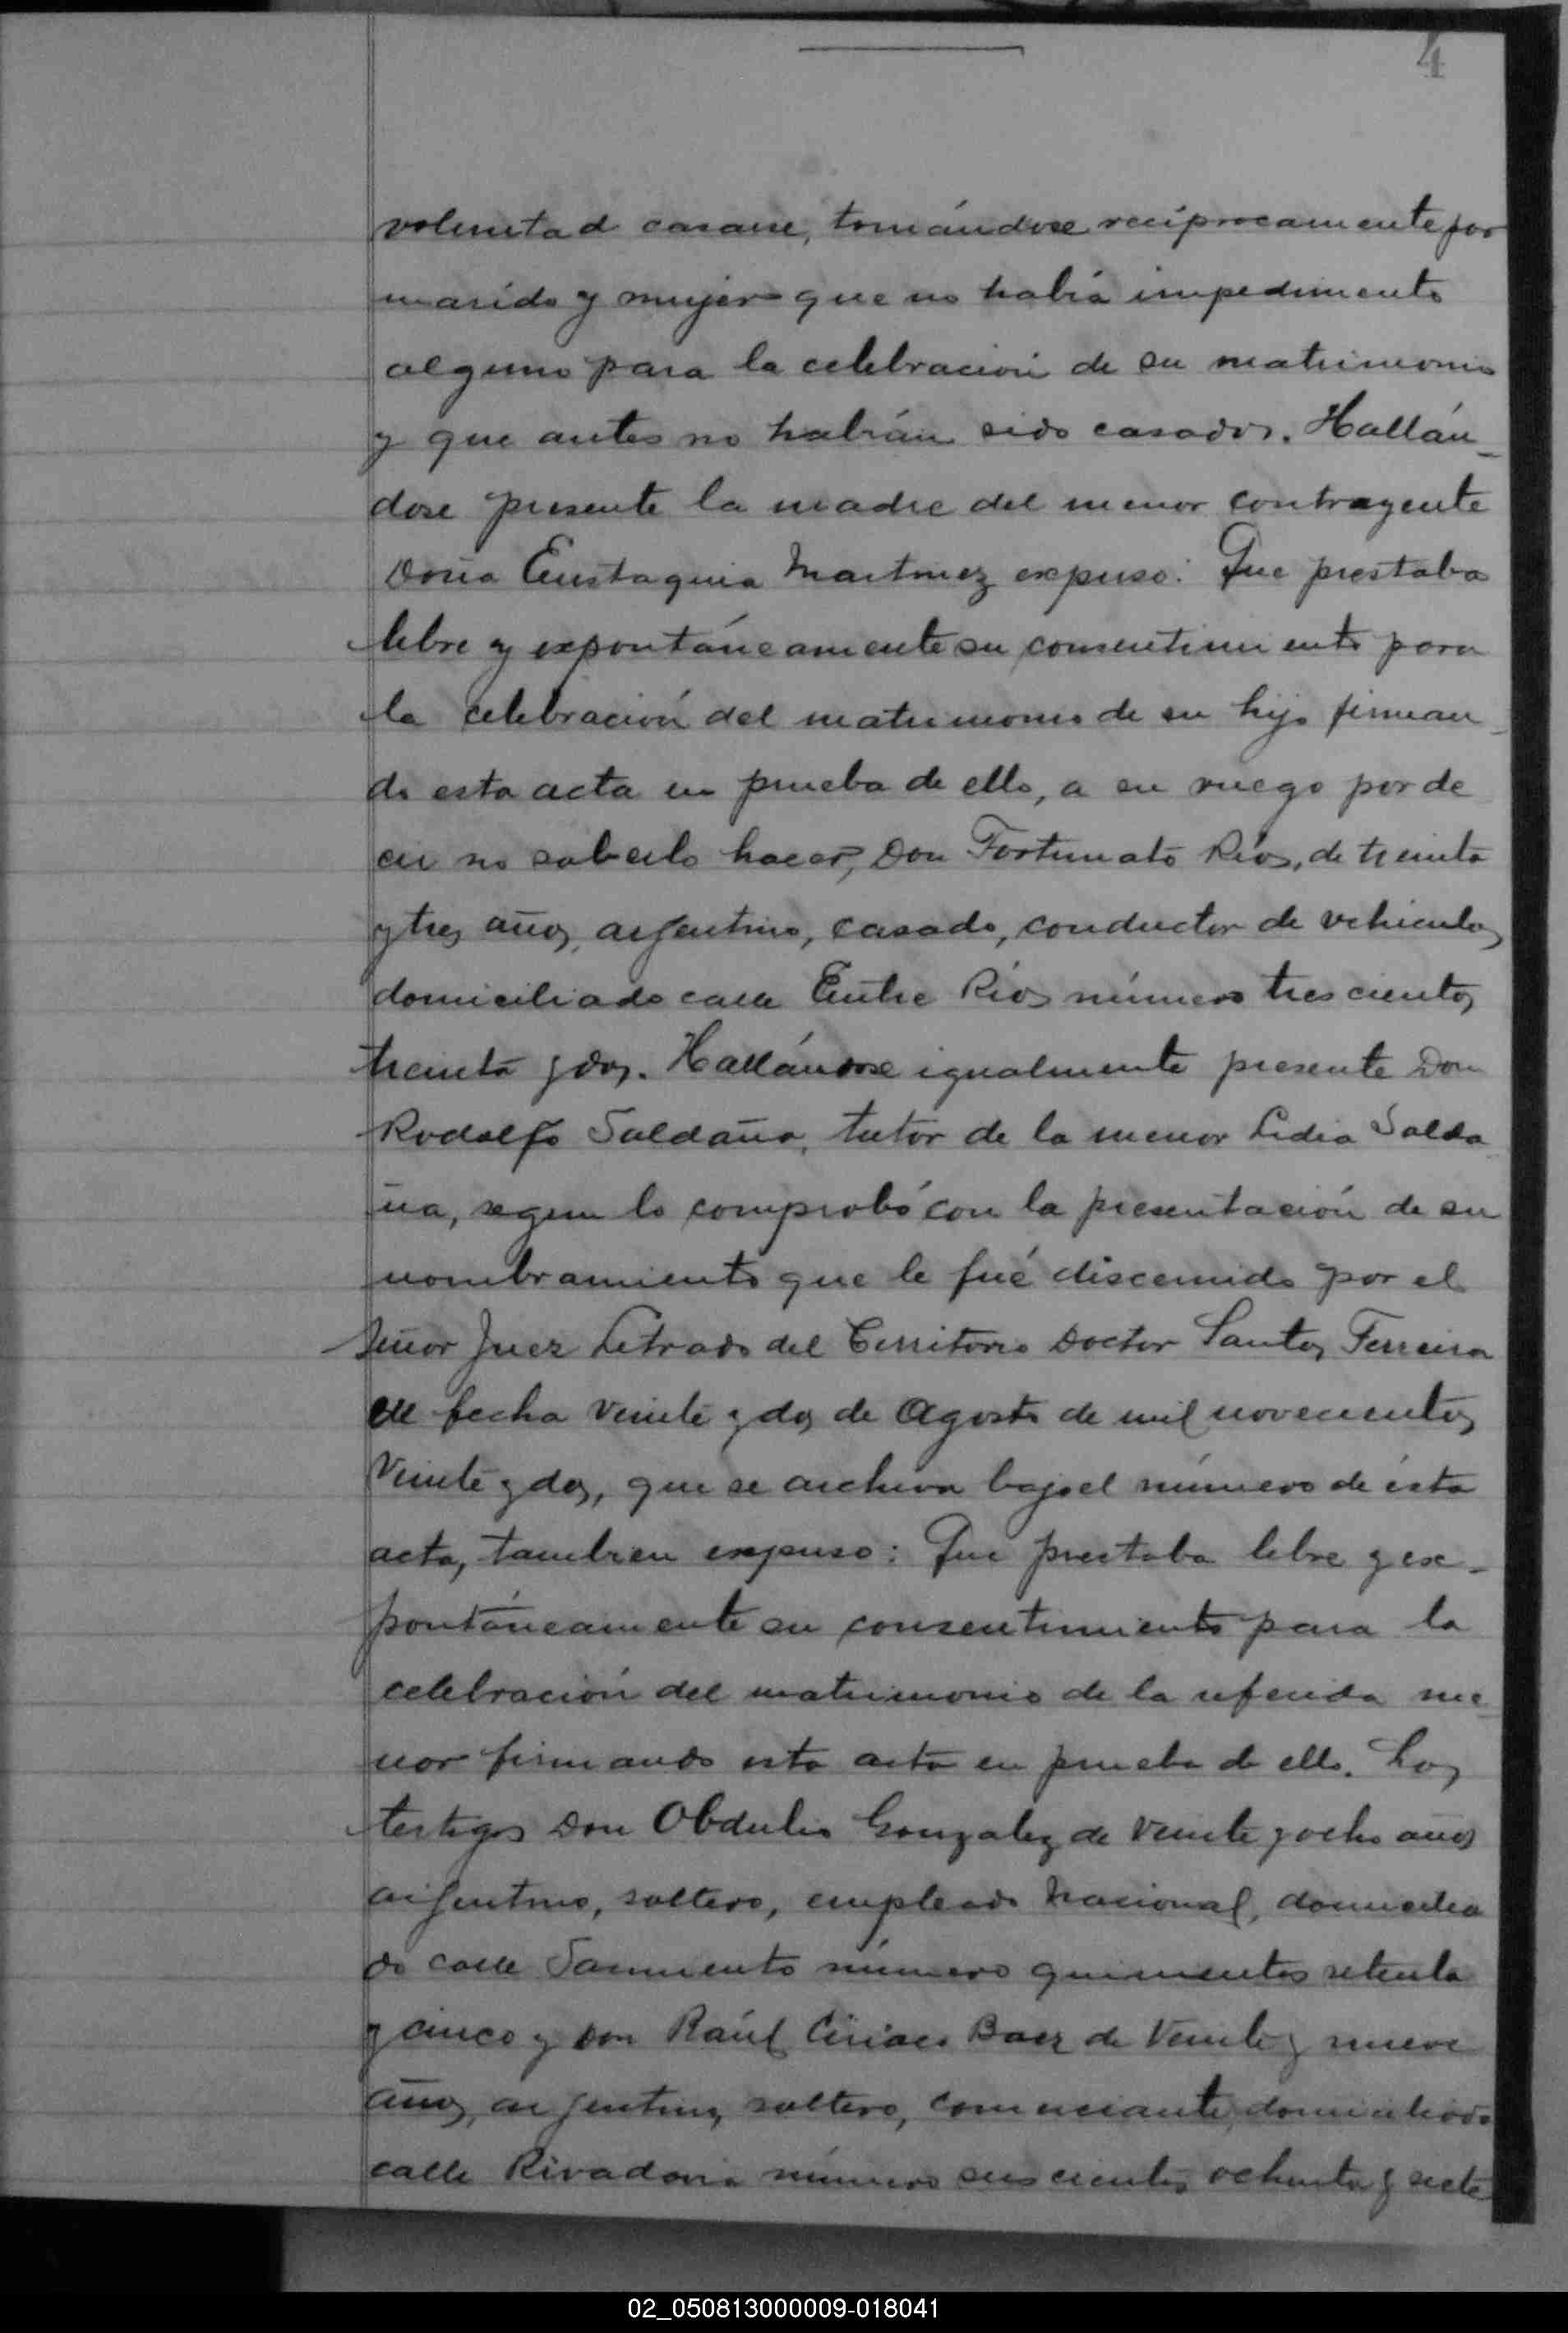 4
voluntad casarse, tomándose recíprocamente por
marido y mujer que no había impedimento
alguno para la celebración de su matrimonio
y que antes no habían sido casados. Hallán_
dose presente la madre del menor contrayente
Doña Eustaquia Martinez expuso: Que prestaba
libre y expontáneamente su consentimiento para
la celebración del matrimonio de su hijo firman_
do esta acta en prueba de ello, a su ruego por de
cir no saberlo hacer, Don Fortunato Ríos, de treinta
y tres años, argentino, casado, conductor de vehiculos,
domiciliado calle Entre Ríos número trescientos
treinta y dos. Hallándose igualmente presente Don
Rodolfo Saldaña, tutor de la menor Lidia Salda_
ña, segun lo comprobó con la presentación de su
nombramiento que le fué discernido por el
Señor Juez Letrado del Territorio Doctor Santos Ferreira
de fecha veinte y dos de Agosto de mil novecientos
Veinte y dos, que se archiva bajo el número de ésta
acta, tambien expuso: Que prestaba libre y ex_
pontáneamente su consentimiento para la
celebración del matrimonio de la referida me_
nor firmando esta acta en prueba de ello. Los
testigos Don Obdulio Gonzalez de veinte y ocho años
argentino, soltero, empleado Nacional, domicilia
do calle Sarmiento número quinientos setenta
y cinco y Don Raúl Ciriaco Baez de Veinte y nueve
años, argentino, soltero, comerciante, domiciliado
calle Rivadavia número seiscientos ochenta y siete
02_050813000009-018041